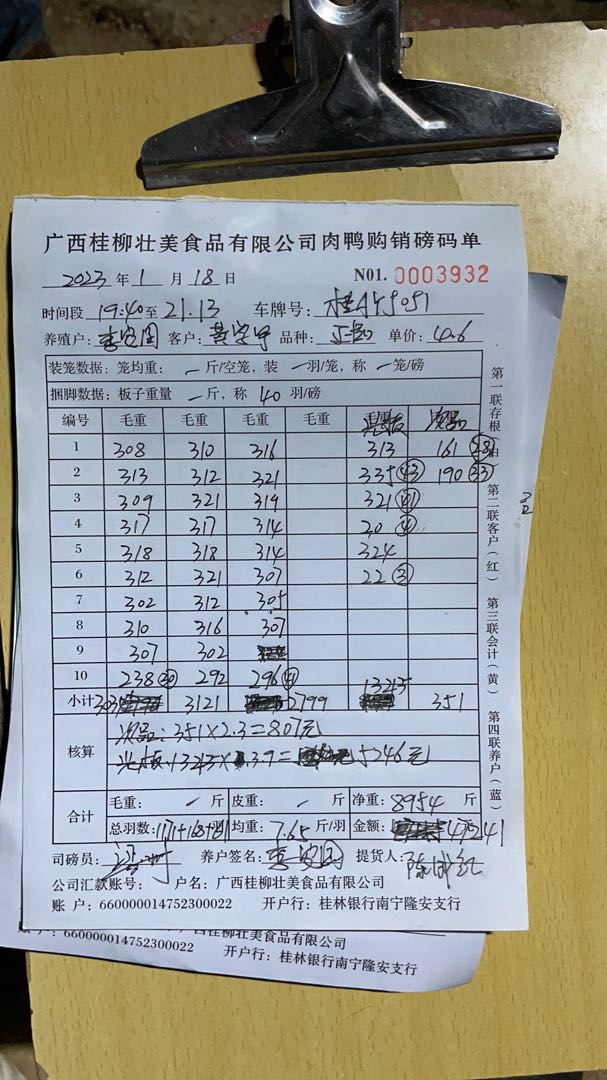 广西桂柳壮美食品有限公司肉鸭购销磅码单
2023 年 1 月 18 日 N01. 0003932
时间段 19:40 至 21.13 车牌号:
养殖户: 客户: 品种: 单价: 4.6
装笼数据: 笼均重: 一 斤/空笼, 装 一 羽/笼, 称 一 笼/磅
捆脚数据: 板子重量 一 斤, 称 40 羽/磅
编号 毛重 毛重 毛重 毛重 次品
1 308 310 316 313 161
2 313 312 321 335 43 190 33
3 309 321 319 321 41
4 317 317 314 20 4
5 318 318 314 324
6 312 321 307 22 3
7 302 312 305
8 310 316 307
9 307 302
10 238 30 292 296
小计 3121 2799 351
核算 次品: 351×2.3=807元
×3.9= 5246元
合计 毛重: 一 斤 皮重: 一 斤 净重: 8954 斤
总羽数: 1171+168+81 均重: 7.65 斤/羽 金额:
司磅员: 养户签名: 提货人:
公司汇款账号: 户名: 广西桂柳壮美食品有限公司
账 户: 660000014752300022 开户行: 桂林银行南宁隆安支行
第一联存根 白
第二联客户(红)
第三联会计(黄)
第四联养户(蓝)
账 户: 660000014752300022
广西桂柳壮美食品有限公司
开户行: 桂林银行南宁隆安支行